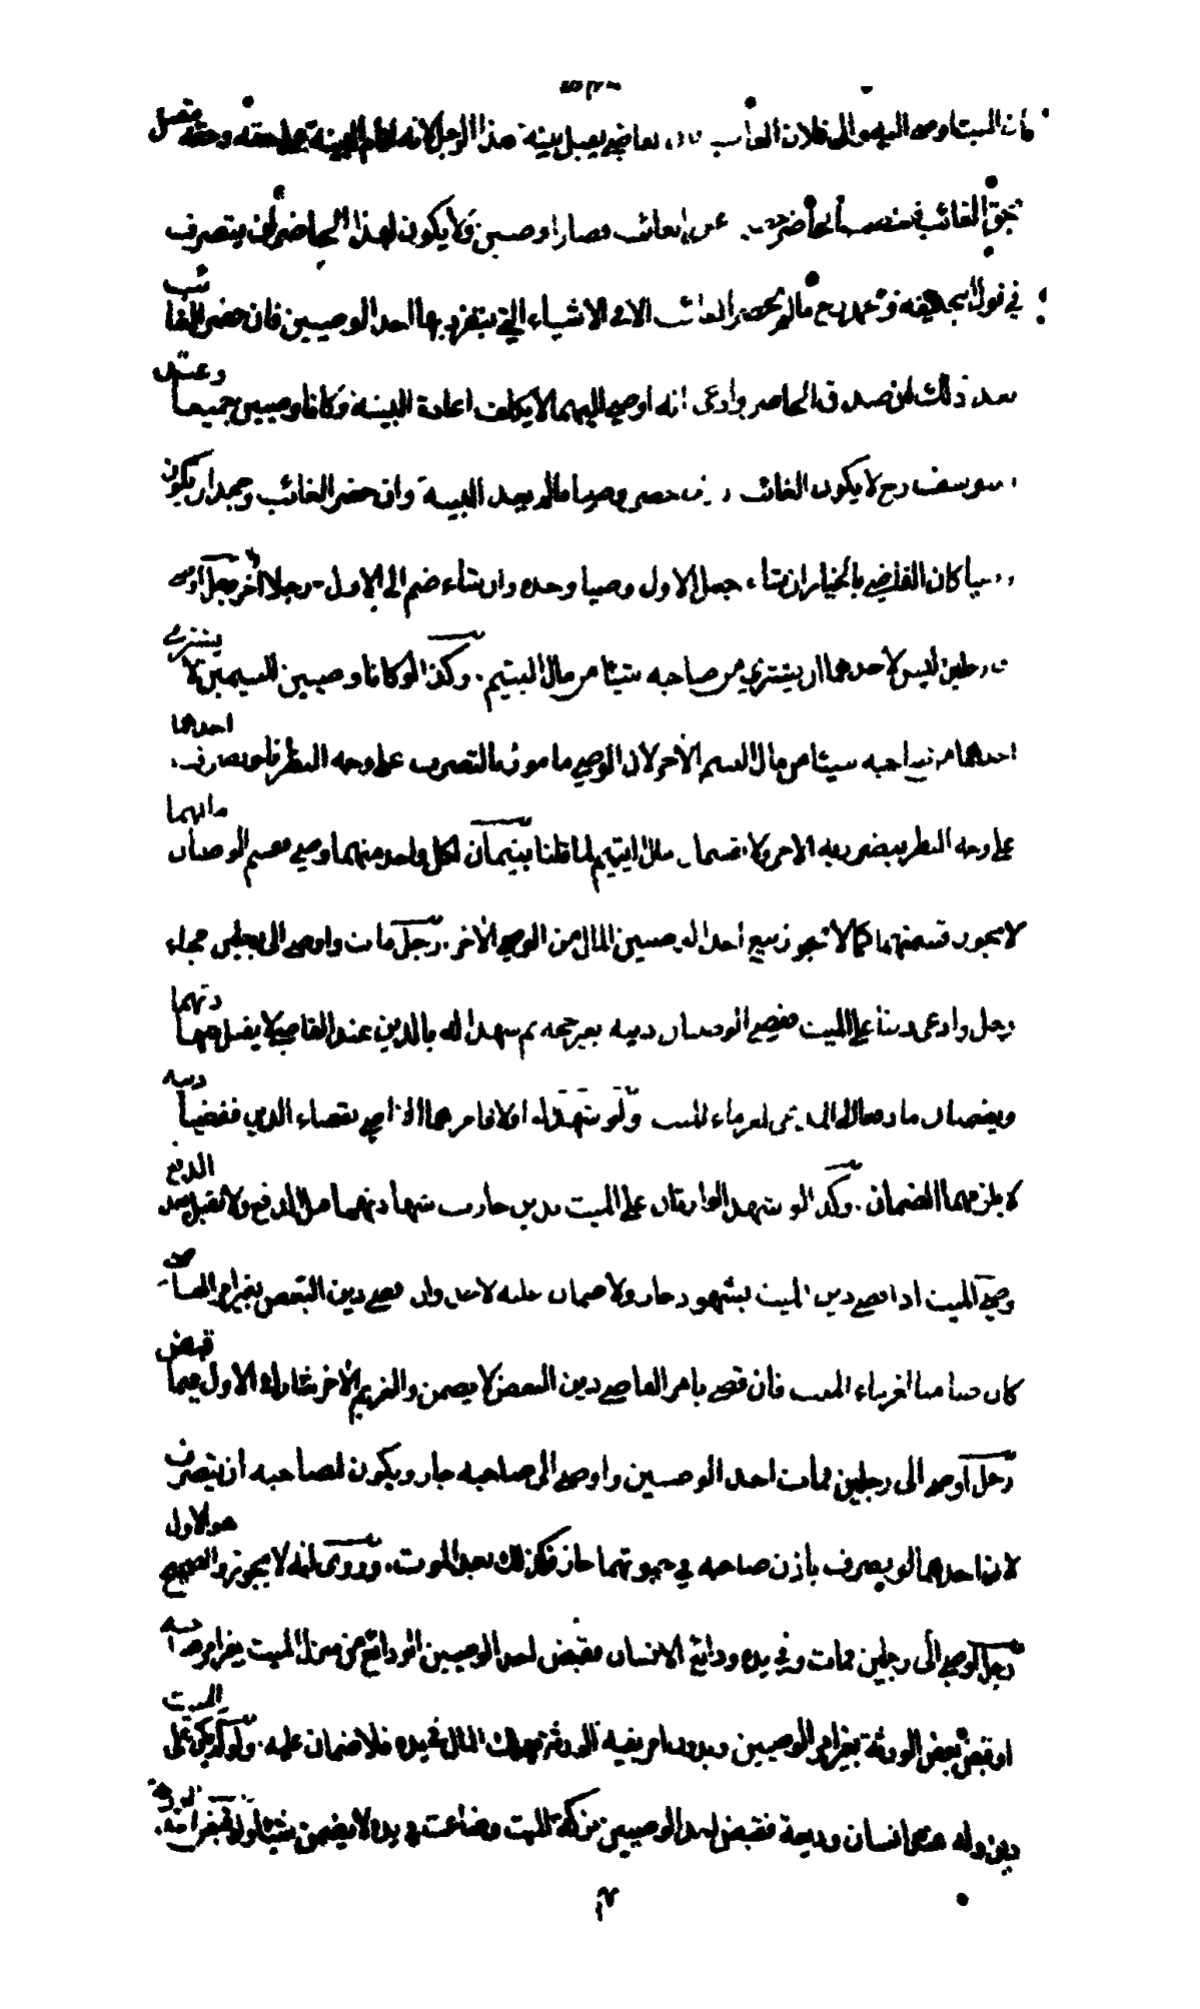 بان الميت اوصى اليه والى فلان الغائب فان القاضي يقبل بينة هذا الرجل لانه اقام البينة على حقه وحقه متصل
بحق الغائب فينتصب الحاضر عن الغائب فصارا وصيين ولا يكون لهذا الحاضر ان يتصرف
في قول ابي حنيفة ومحمد رح مالم يحضر الغائب الا في الاشياء التي ينفرد بها احد الوصيين فان حضر الغائب
بعد ذلك ان صدق الحاضر وادعى انه اوصى اليهما لا يكلف اعادة البينة وكانا وصيين جميعا وعند
ابي يوسف رح لا يكون الغائب وصيا مالم يعد البينة وان حضر الغائب وجحد ان يكون
وصيا كان القاضي بالخيار ان شاء جعل الاول وصيا وحده وان شاء ضم الى الاول رجلا اخر رجل اوصى
الى رجلين ليس لاحدهما ان يشتري من صاحبه شيئا من مال اليتيم وكذا لو كانا وصيين لليتيمين لا يشتري
احدهما من صاحبه شيئا من مال اليتيم الآخر لان الوصي مامور بالتصرف على وجه النظر فلو تصرف احدهما
على وجه النظر يتضرر به الآخر ولا يقتسمان مال اليتيم لما قلنا يتيمان لكل واحد منهما وصي فقسم الوصيان مالهما
لا يجوز قسمتهما كما لا يجوز بيع احد الوصيين المال من الوصي الآخر رجل مات واوصى الى رجلين فجاء
رجل وادعى دينا على الميت فقضى الوصيان دينه بغير حجة ثم شهدا له بالدين عند القاضي لا يقبل شهادتهما
ويضمنان ما دفعا الى المدعي لغرماء الميت ولو شهدا له اولا فامرهما القاضي بقضاء الدين فقضيا دينه
لا يلزمهما الضمان وكذا لو شهد الوارثان على الميت بدين جازت شهادتهما قبل الدفع ولا تقبل بعد الدفع
وصي الميت اذا قضى دين الميت بشهود جاز ولا ضمان عليه لاحد وان قضى دين البعض بغير امر القاضي
كان ضامنا لغرماء الميت فان قضى بامر القاضي دين البعض لا يضمن والغريم الآخر يشارك الاول فيما قبض
رجل اوصى الى رجلين فمات احد الوصيين واوصى الى صاحبه جاز ويكون لصاحبه ان يتصرف
لان احدهما لو تصرف باذن صاحبه في حيوتهما جاز فكذلك بعد الموت وروي انه لا يجوز والصحيح هو الاول
رجل اوصى الى رجلين فمات وفي يده ودائع لانسان فقبض احد الوصيين الودائع من منزل الميت بغير امر صاحبه
او قبض بعض الورثة بغير امر الوصيين وبدون امر بقية الورثة فهلك المال في يده فلا ضمان عليه ولو لم يكن على الميت
دين وله عند انسان وديعة فقبض احد الوصيين تركة الميت وضاعت في يده لا يضمن شيئا